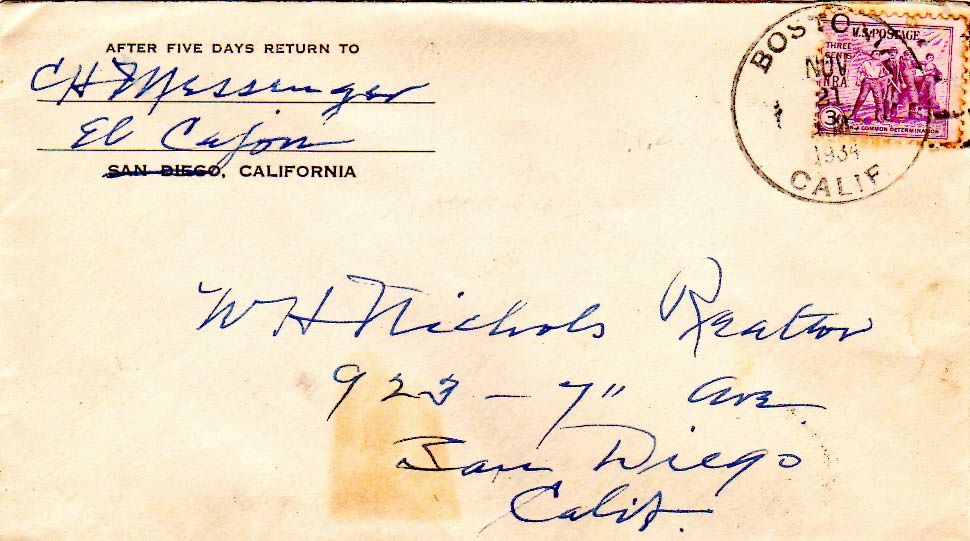 AFTER FIVE DAYS RETURN TO
CH Messenger
El Cajon
SAN DIEGO, CALIFORNIA
BOSTONIA
NOV
21
1934
CALIF.
U.S. POSTAGE
THREE CENTS
NRA
3¢
IN A COMMON DETERMINATION
W H Nichols Realtor
923 - 7" Ave
San Diego
Calif.